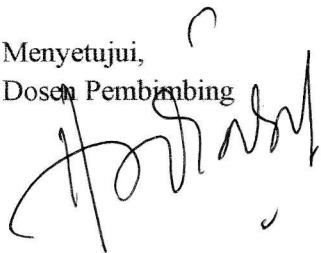 Menyetujui,
Dosen Pembimbing